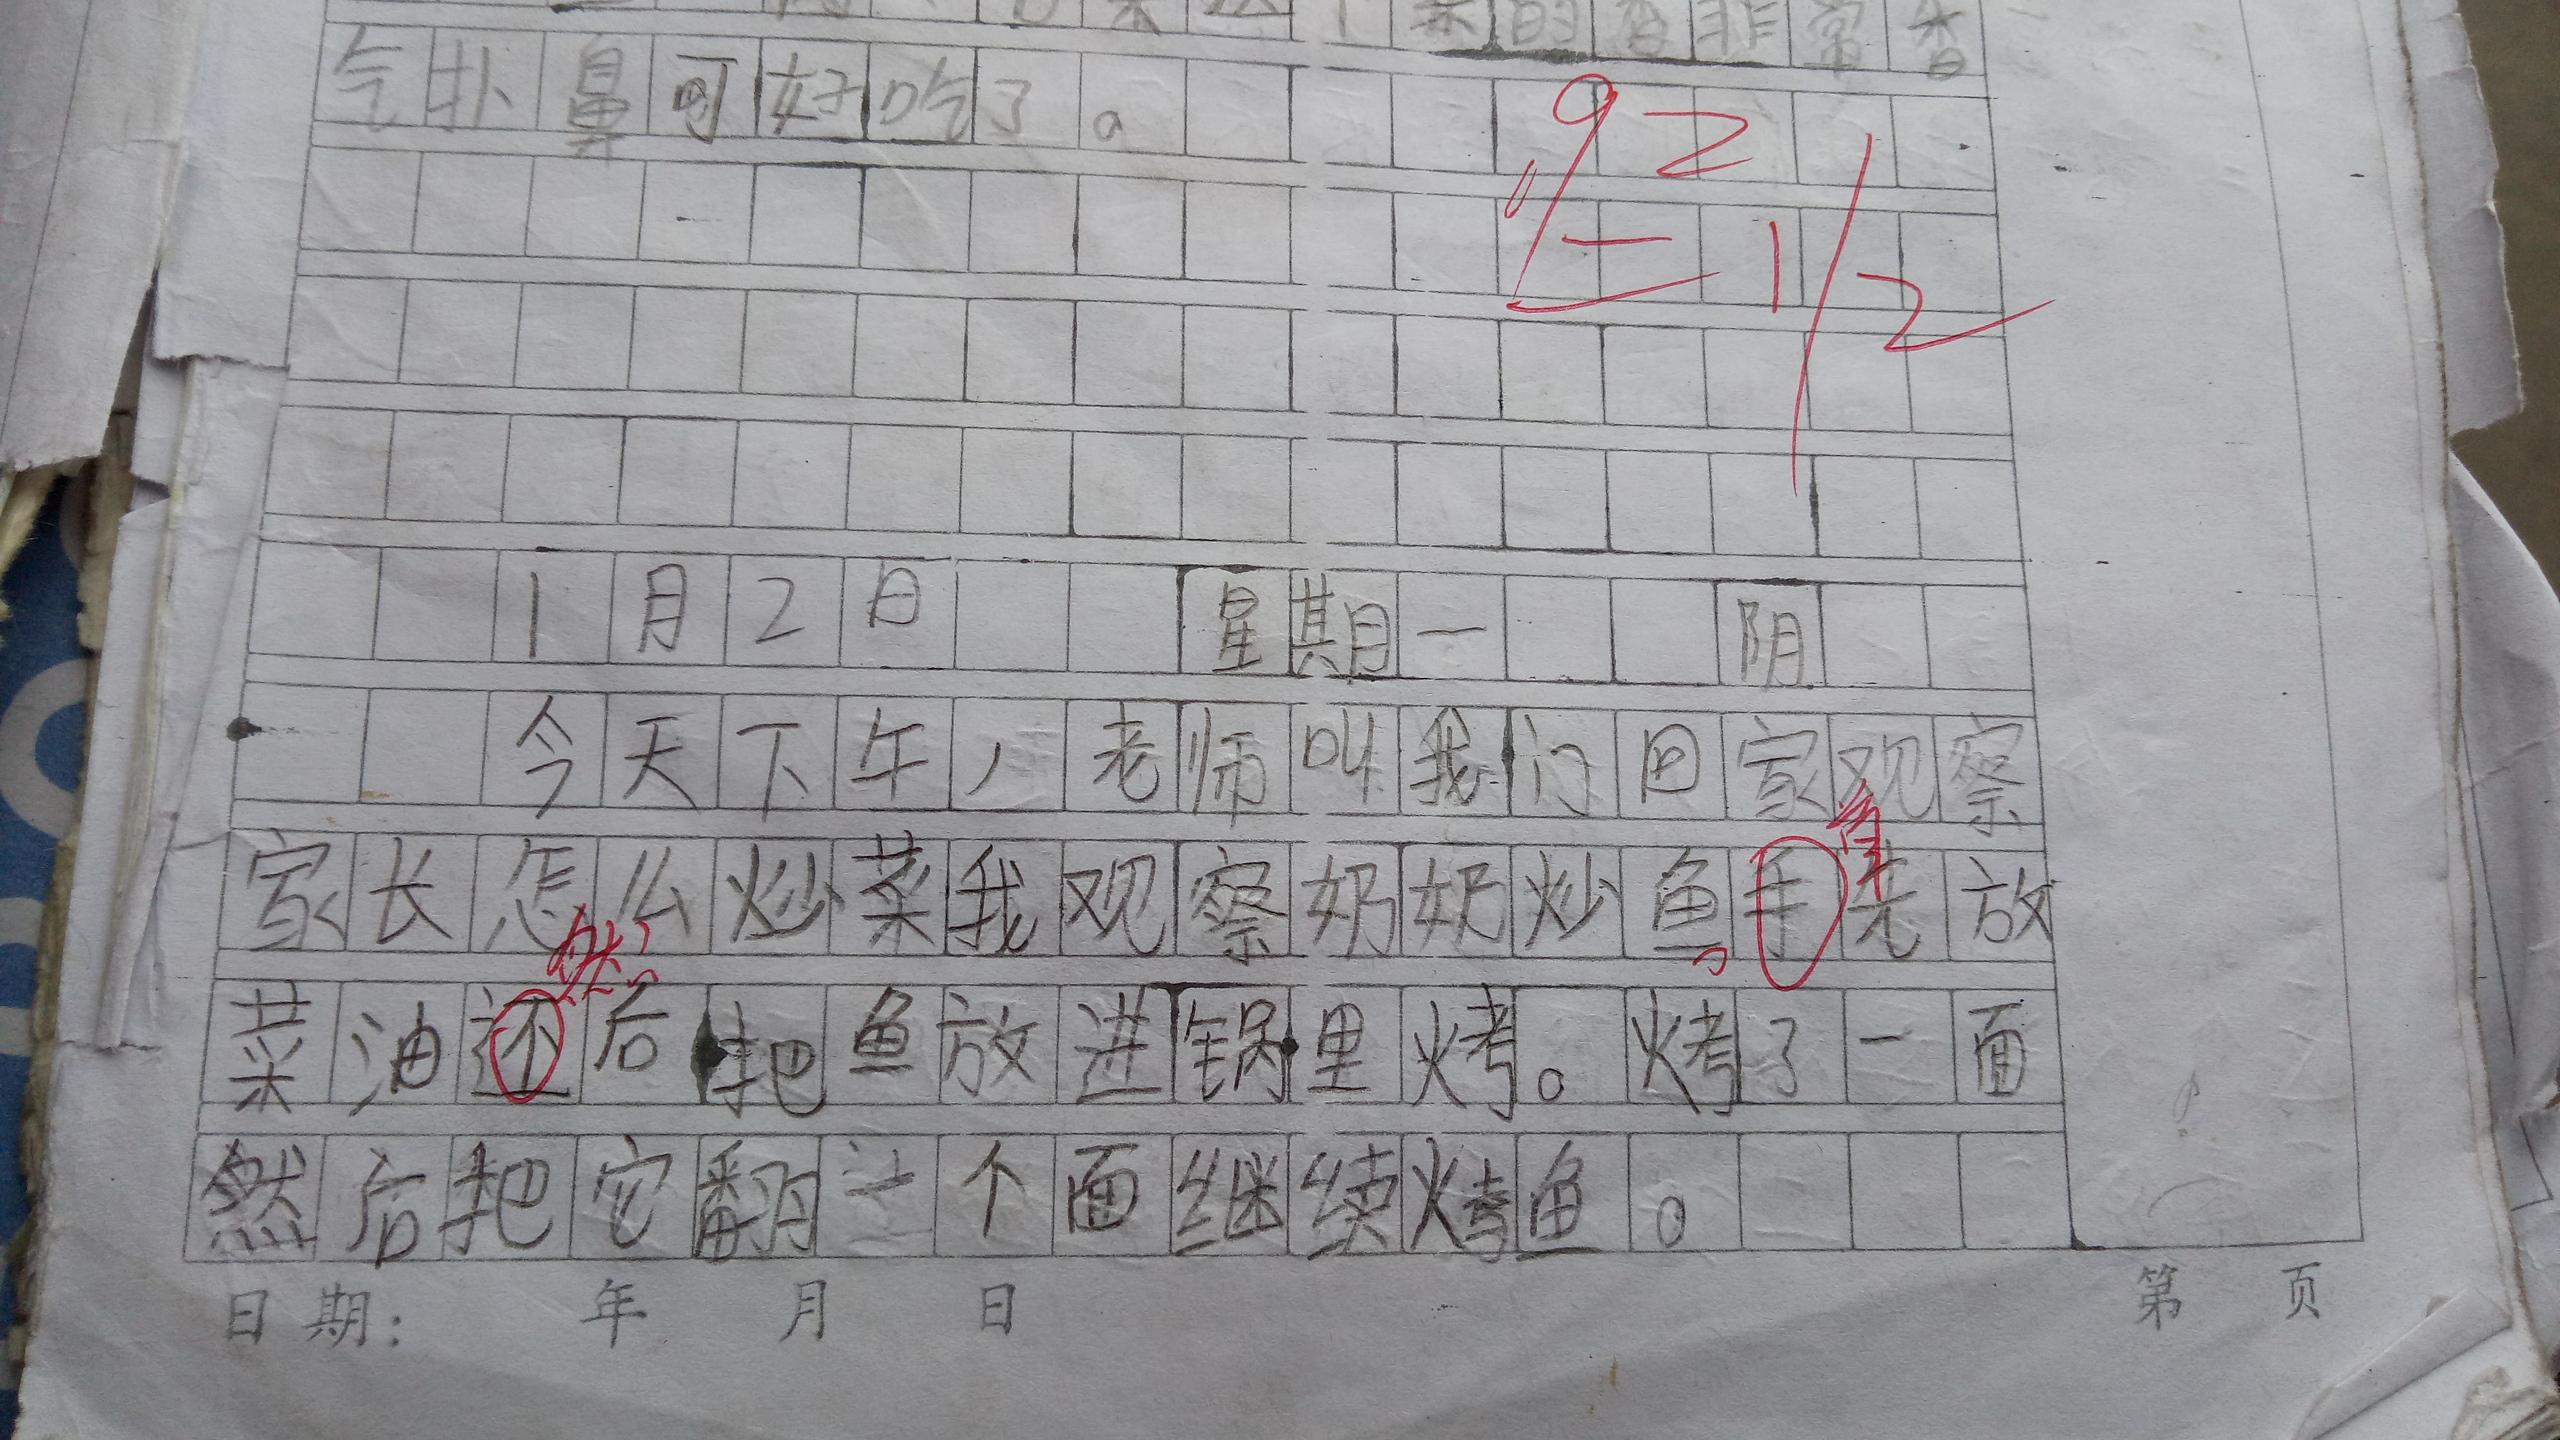 的香非常香
气扑鼻可好吃了。
92
1/2
1月2日 星期一 阴
今天下午，老师叫我门回家观察
首
家长怎么炒菜我观察奶奶炒鱼，手先放
然
菜油还后把鱼放进锅里烤。烤了一面
然后把它翻过个面继续烤鱼。
日期： 年 月 日 第 页